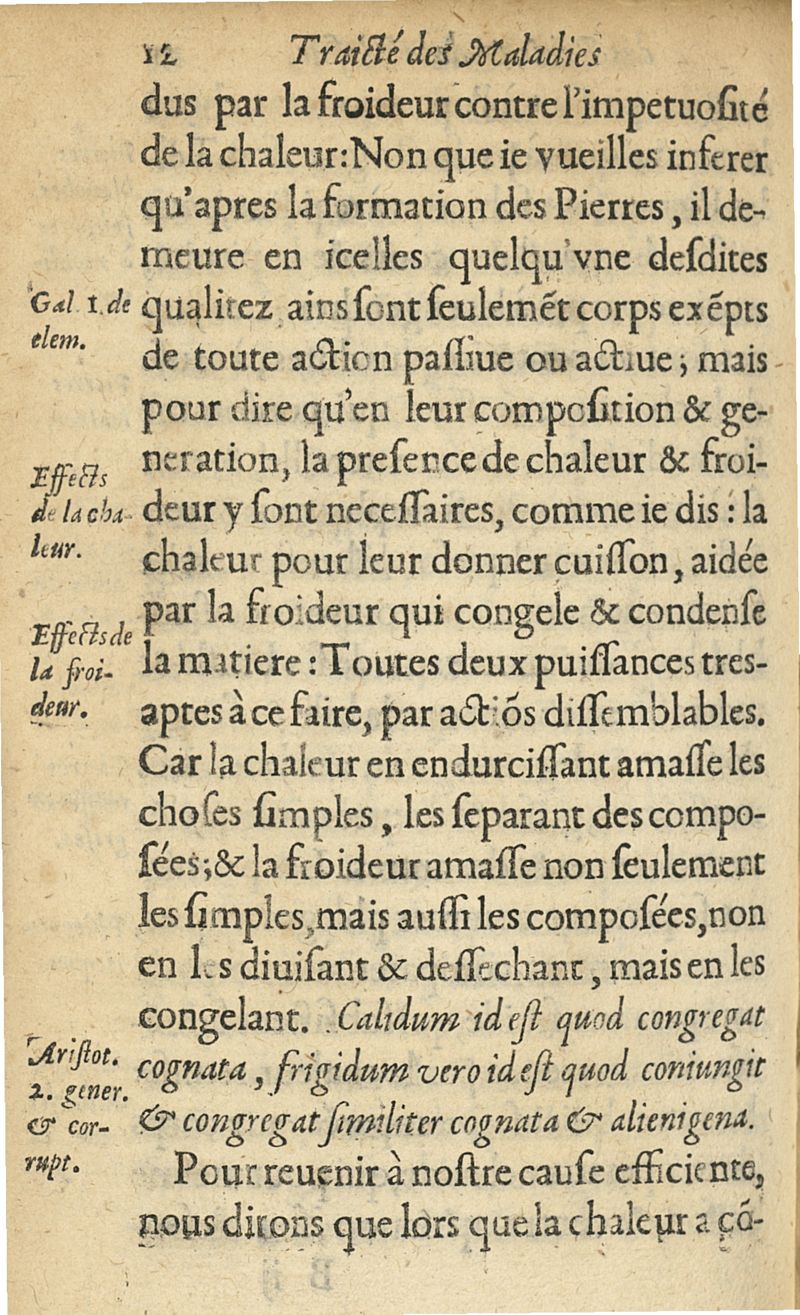 12 Traicté des Maladies
dus par la froideur contre l'impetuoſité
de la chaleur: Non que ie vueilles inferer
qu'apres la formation des Pierres, il de-
meure en icelles quelqu'vne deſdites
Gal 1. de
elem.
qualitez ains ſont ſeulemẽt corps exẽpts
de toute action paſſiue ou actiue; mais
pour dire qu'en leur compoſition & ge-
neration, la preſence de chaleur & froi-
Effects
de la cha-
leur.
deur y ſont neceſſaires, comme ie dis : la
chaleur pour leur donner cuiſſon, aidée
par la froideur qui congele & condenſe
Effects de
la froi-
deur.
la matiere : Toutes deux puiſſances tres-
aptes à ce faire, par actiõs diſſemblables.
Car la chaleur en endurciſſant amaſſe les
choſes ſimples, les ſeparant des compo-
ſées; & la froideur amaſſe non ſeulement
les ſimples, mais auſſi les compoſées, non
en les diuiſant & deſſechant, mais en les
congelant. Calidum id eſt quod congregat
Ariſtot.
2. gener.
& cor-
rupt.
cognata, frigidum vero id eſt quod coniungit
& congregat ſimiliter cognata & alienigena.
Pour reuenir à noſtre cauſe efficiente,
nous dirons que lors que la chaleur a cõ-
B ij